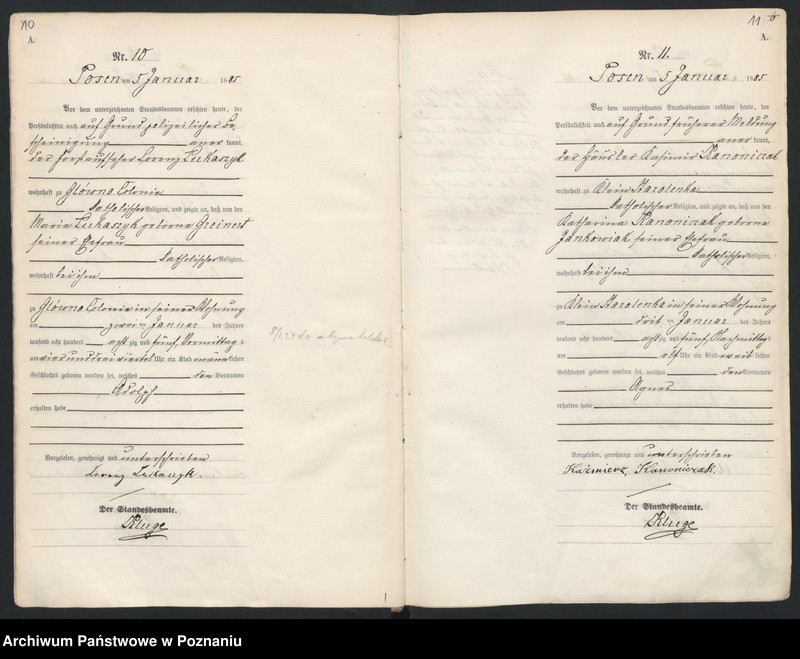 10
A.
Nr. 10
Posen am 5 Januar 1885
Vor dem unterzeichneten Standesbeamten erschien heute, der
Persönlichkeit nach auf Grund polizeilicher Be
scheinigung anerkannt,
der Forstaufseher Lorenz Lukaszyk
wohnhaft zu Glówno Colonie
katholischer Religion, und zeigte an, daß von der
Maria Lukaszyk geborne Greinert
seiner Ehefrau
katholischer Religion,
wohnhaft bei ihm
zu Glówno Colonie in seiner Wohnung
am zwei ten Januar des Jahres
tausend acht hundert acht zig und fünf, Vormittags
um vier und drei viertel Uhr ein Kind männlichen
Geschlechts geboren worden sei, welches den Vornamen
Adolph
erhalten habe
Vorgelesen, genehmigt und unterschrieben
Lorenz Lukaszyk.
Der Standesbeamte.
Kluge
11 6
A.
Nr. 11.
Posen am 5 Januar 1885
Vor dem unterzeichneten Standesbeamten erschien heute, der
Persönlichkeit nach auf Grund früherer Meldung
anerkannt,
der Häusler Kasimir Kanoniczak
wohnhaft zu Klein Starolenka
katholischer Religion, und zeigte an, daß von der
Katharina Kanoniczak geborne
Jankowiak seiner Ehefrau
katholischer Religion,
wohnhaft bei ihm
zu Klein Starolenka in seiner Wohnung
am drit ten Januar des Jahres
tausend acht hundert acht zig und fünf, Nachmittags
um acht Uhr ein Kind weiblichen
Geschlechts geboren worden sei, welches den Vornamen
Agnes
erhalten habe
Vorgelesen, genehmigt und unterschrieben
Kaźmierz, Kanoniczak.
Der Standesbeamte.
Kluge
Archiwum Państwowe w Poznaniu